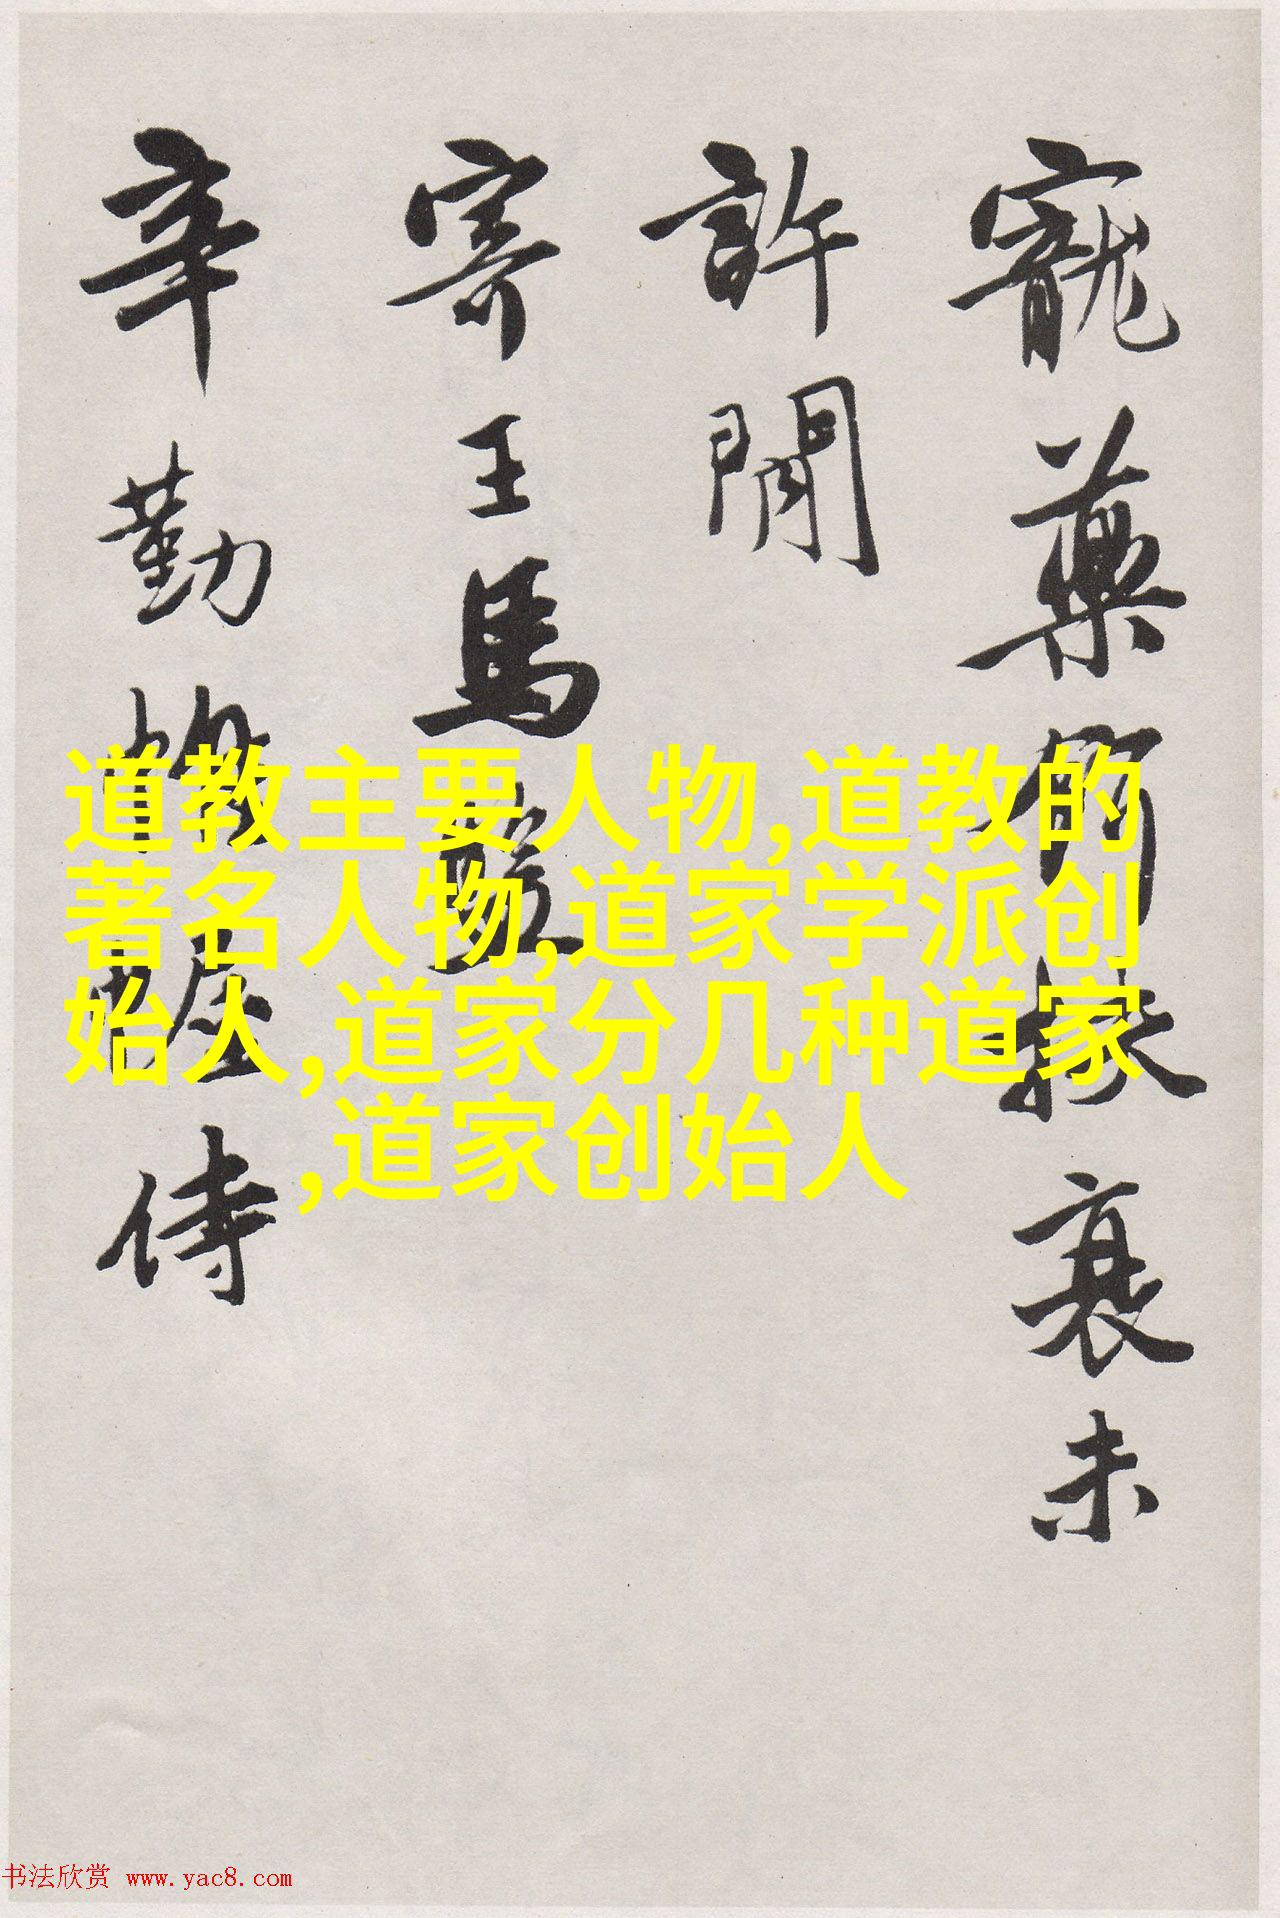 寵藥何扶衰未
許閒
寄王馬
辛勤
侍
道教主要人物,道教的
著名人物,道家学派创
始人,道家分几种道家
,道家创始人
书法欣赏 www.yac8.com